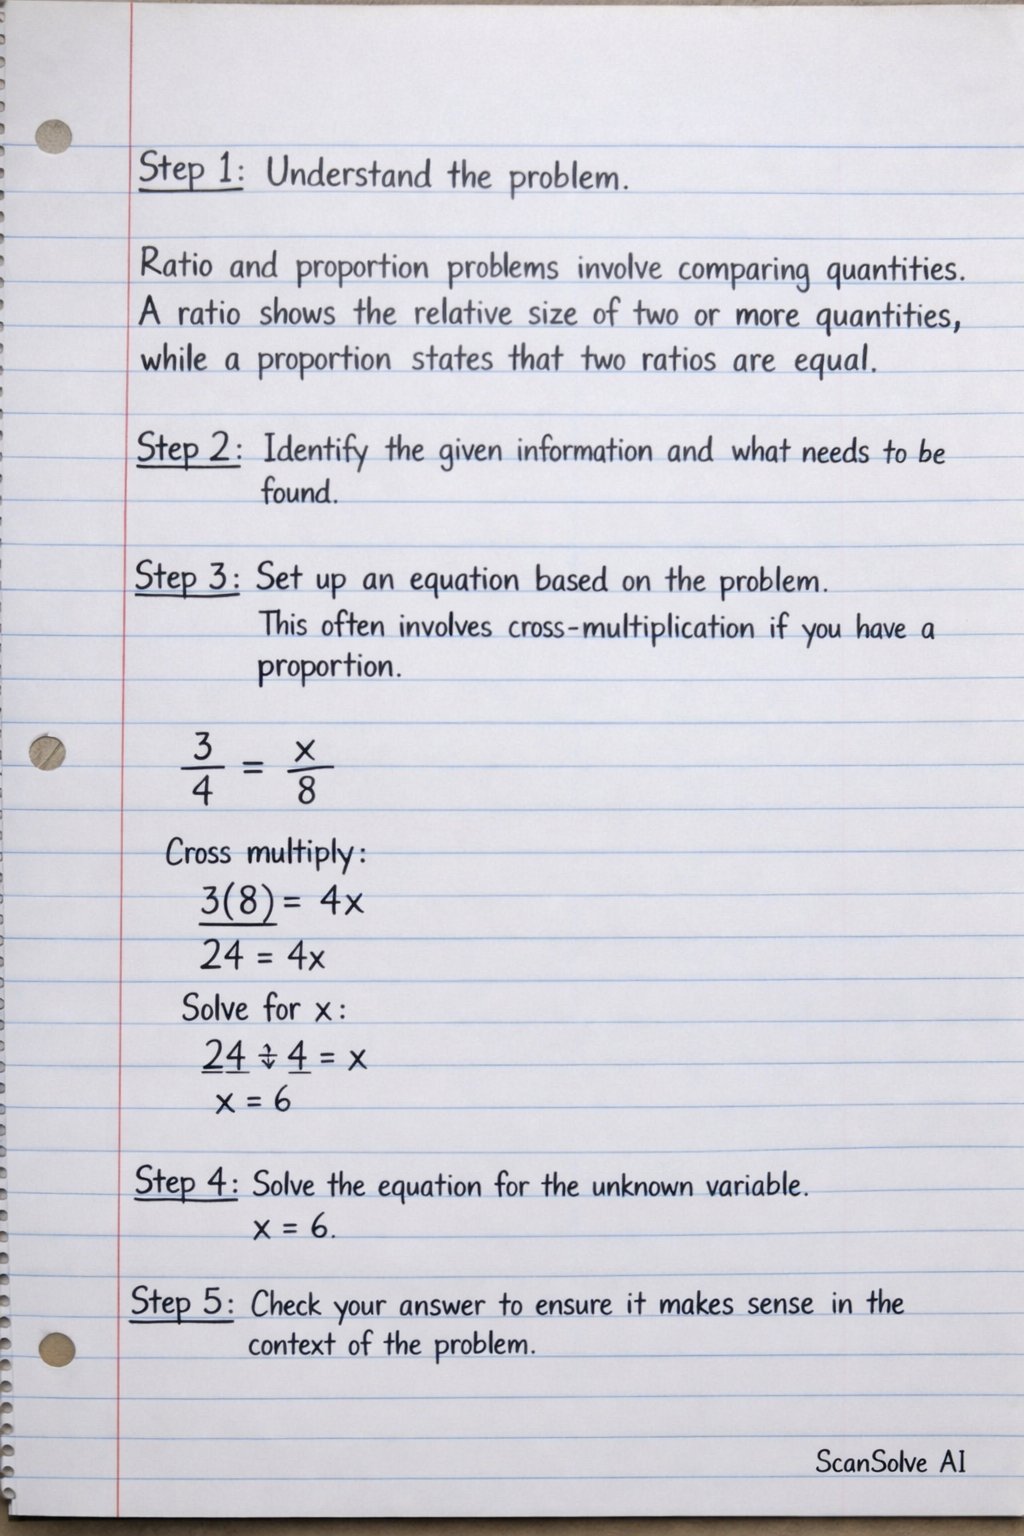 Step 1: Understand the problem.
Ratio and proportion problems involve comparing quantities.
A ratio shows the relative size of two or more quantities,
while a proportion states that two ratios are equal.
Step 2: Identify the given information and what needs to be
found.
Step 3: Set up an equation based on the problem.
This often involves cross-multiplication if you have a
proportion.
3/4 = x/8
Cross multiply:
3(8) = 4x
24 = 4x
Solve for x:
24 ÷ 4 = x
x = 6
Step 4: Solve the equation for the unknown variable.
x = 6.
Step 5: Check your answer to ensure it makes sense in the
context of the problem.
ScanSolve AI